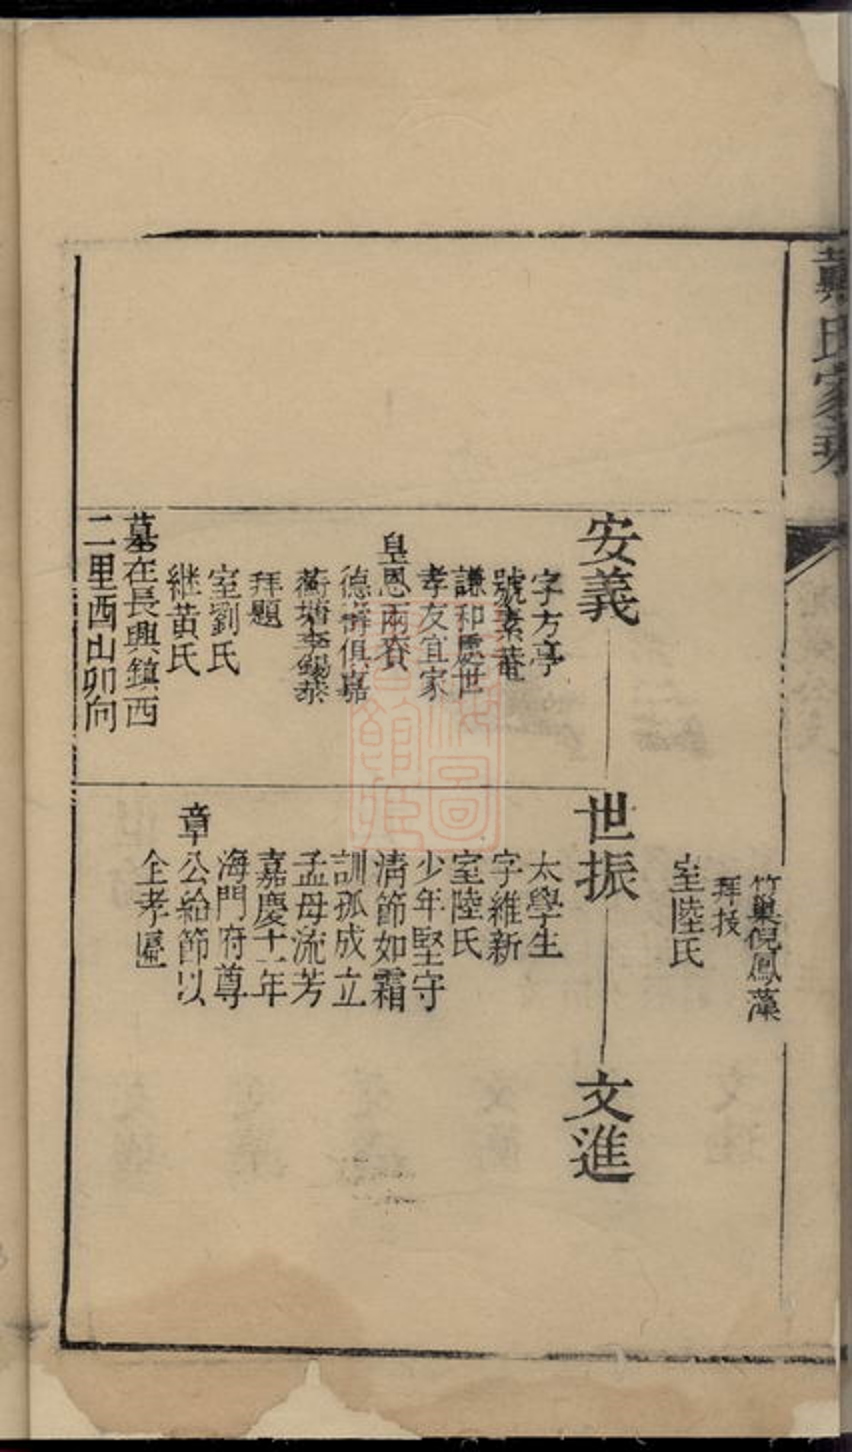 氏家乘
竹巢倪鳳藻
拜技
室陸氏
安義
字方亭
號素菴
謙和處世
孝友宜家
皇恩兩賚
德壽俱嘉
蘅塘李錫恭
拜題
室劉氏
継黃氏
墓在長興鎮西
二里酉山卯向
世振
太學生
字維新
室陸氏
少年堅守
清節如霜
訓孤成立
孟母流芳
嘉慶十一年
海門府尊
章公給節以
全孝匾
文進